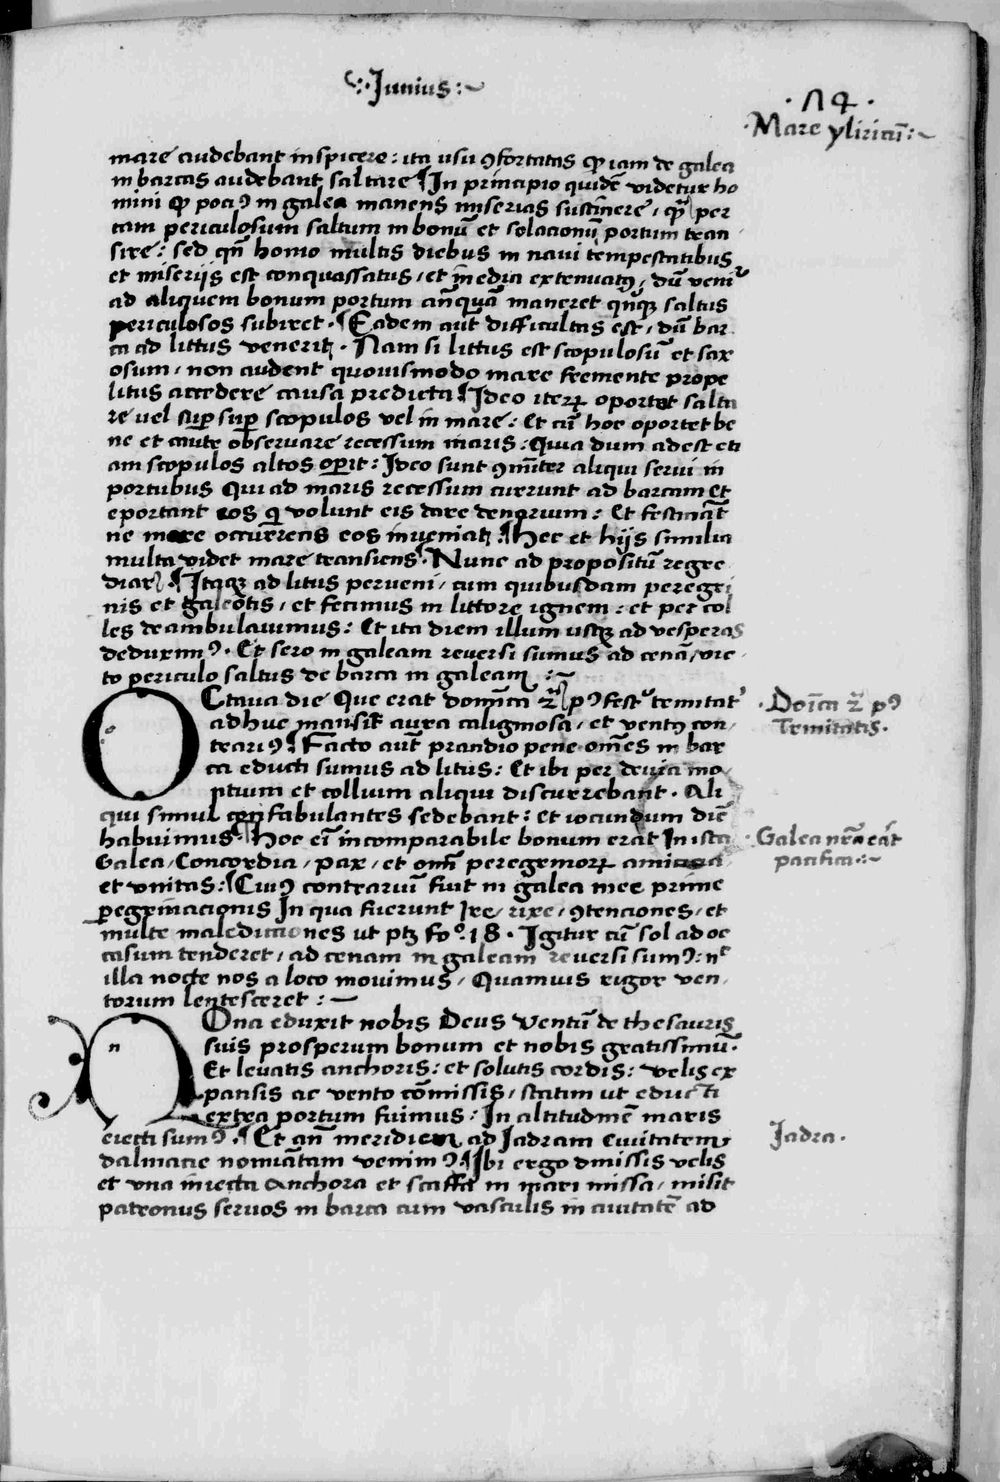 ·:Junius:~
·74·
·Mare yliricū:~
mare audebant inspicere: ita usu ꝯfortatas ꝙ iam de galea
in barcas audebant saltare ¶In principio quidē videtur ho
mini ꝙ pociꝰ in galea manens miserias sustinere, per
tam periculosum saltum in bonū et solacionū portum tran
sire: sed qn̄ homo multis diebus in navi tempestatibus
et miserijs est conquassatus, et inedia extenuatꝰ, dū venit
ad aliquem bonum portum anq̄uā maneret saltus
periculosos subiret. ¶Eadem aūt difficultas est, dū bar
ca ad littus venerit. Nam si littus est scopulosū et sax
osum, non audent quovismodo mare fremente prope
litus accedere causa predicta ¶Ideo iterꝝ oportet salta
re vel suꝑ suꝑ scopulos vel in mare: Et cū hoc oportet be
ne et caute observare recessum maris: Quia dum adest eti
am scopulos altos oꝑit: Ideo sunt ꝯmūiter aliqui servi in
portubus Qui ad maris recessum currunt ad barcam et
eportant eos q̇ volunt eis dare denarium: Et festināt
ne mare occurrens eos inveniat. ¶Hec et hijs similia
multa videt mare transiens. Nunc ad propositū regre
diar. ¶Itaqꝫ ad litus perveni, cum quibusdam peregri
nis et galeōtis, et fecimus in littore ignem: et per col
les deambulavimus: Et ita diem illum usqꝫ ad vesperas
deduximꝰ. Et sero in galeam reversi sumus ad cenā, vic
to periculo saltus de barca in galeam :~
OCtava die Que erat domīca 2ᵃ pꝰ festū trinitatꝭ
adhuc mansit aura caliginosa, et ventꝰ con
trariꝰ ¶Facto aūt prandio pene om̄es in bar
ca educti sumus ad litus: Et ibi per devia mo
ntium et collium aliqui discurrebant. Ali
qui simul confabulantes sedebant: Et iocundum diē
habuimus. ¶Hoc ei̅ incomparabile bonum erat In ista
Galea, Concordia, pax, et om̄i peregrinorꝝ amicicia
et vnitas: ¶Cuiꝰ contrariū fuit in galea mee prime
ꝑegrinacionis In qua fuerunt Ire, rixe, ꝯtenciones, et
multe maledictiones ut ptꝫ foº. 18. Igitur cū sol ad oc
casum tenderet, ad cenam in galeam reversi sumꝰ: nᶜ
illa nocte nos a loco movimus, Quamvis rigor ven
torum lentesceret :—
NOna eduxit nobis Deus Ventū de thesauris
suis prosperum bonum et nobis gratissimū.
Et levatis anchoris: et solutis cordis: velis ex
pansis ac vento cōmissis, statim ut educti
extra portum fuimus: In altitudinē maris
eiecti sumꝰ. ¶Et an̄ meridiem ad Jadram Civitatem
dalmacie nomiātam venimꝰ. ¶Ibi ergo dmissis velis
et vna iniecta anchora et scaffa in mari missa, misit
patronus servos in barca cum vasculis in civitatē ad
·Doīca 2ᵃ pꝰ
Trinitatis.
·Galea nr̄a erāt
pacifica.:~
Jadra.